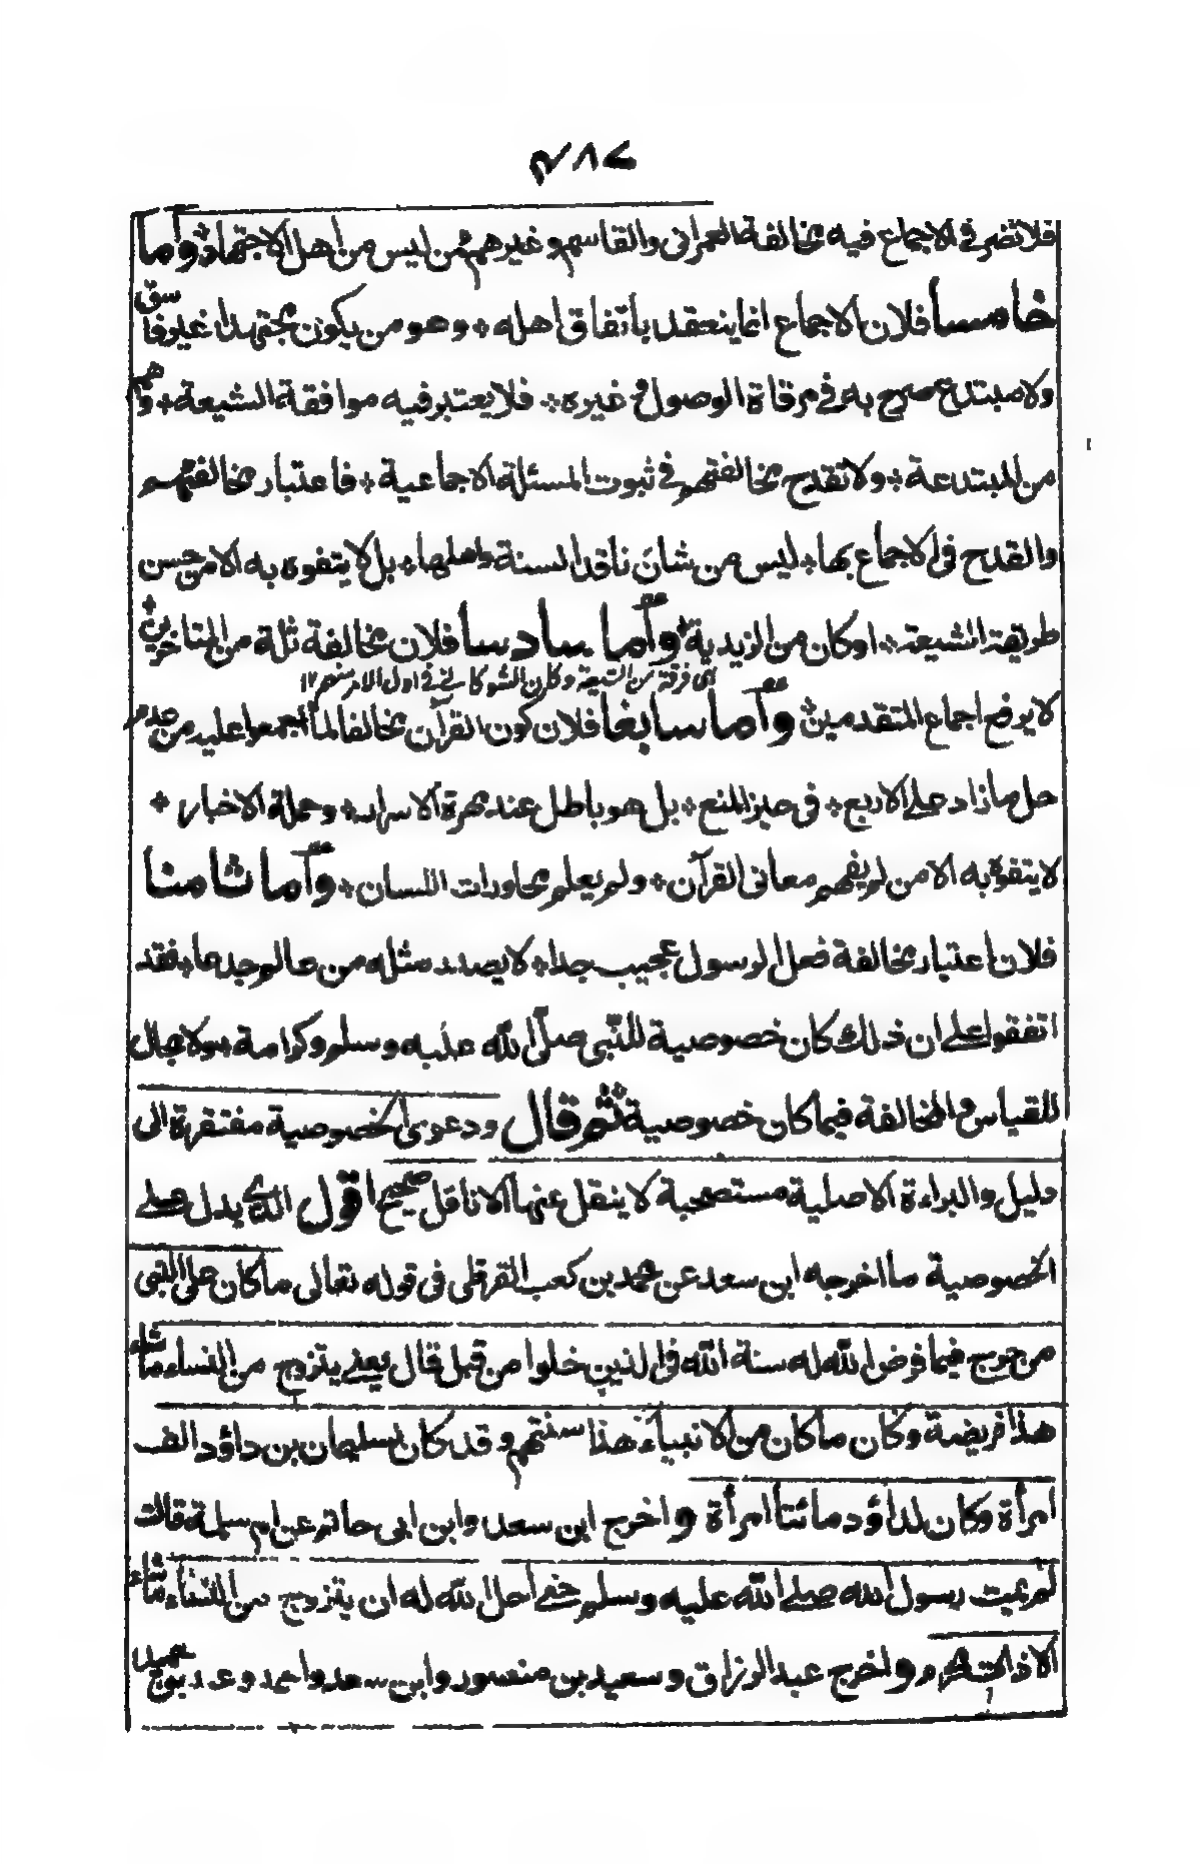 ٢٨٧
فلا تضر في الاجماع فيه مخالفة العمرانى والقاسم وغيرهم ممن ليس من اهل الاجتهاد وأما
خامسا فلان الاجماع انما ينعقد باتفاق اهله وهو من يكون مجتهدا غير فاسق
ولا مبتدع صرح به في مرقاة الوصول وغيره فلا يعتبر فيه موافقة الشيعة وهم
من المبتدعة ولا تقدح مخالفتهم في ثبوت المسئلة الاجماعية فاعتبار مخالفتهم
والقدح فى الاجماع بها ليس من شان ناقد السنة واهلها بل لا يتفوه به الا من حسن
طريقة الشيعة او كان من الزيدية وأما سادسا فلان مخالفة ثلة من المتاخرين
اى فرقة من الشيعة وكان الشوكانى في اول الامر منهم ١٢
لا يرفع اجماع المتقدمين وأما سابعا فلان كون القرآن مخالفا لما أجمعوا عليه من عدم
حل ما زاد على الاربع فى حيز المنع بل هو باطل عند مهرة الاسرار وحملة الاخبار
لا يتفوه به الا من لم يفهم معانى القرآن ولم يعلم محاورات اللسان وأما ثامنا
فلان اعتبار مخالفة فعل الرسول عجيب جدا لا يصدر مثله من عالم وجدها فقد
اتفقوا على ان ذلك كان خصوصية للنبى صلى الله عليه وسلم وكرامة ولا مجال
للقياس والمخالفة فيما كان خصوصية ثم قال ودعوى الخصوصية مفتقرة الى
دليل والبراءة الاصلية مستصحبة لا ينقل عنها الا ناقل صحيح اقول الذي يدل على
الخصوصية ما اخرجه ابن سعد عن محمد بن كعب القرظى فى قوله تعالى ما كان على النبى
من حرج فيما فرض الله له سنة الله في الذين خلوا من قبل قال يعنى يتزوج من النساء ما شاء
هذا فريضة وكان ما كان من الانبياء هذا سنتهم وقد كان لسليمان بن داؤد الف
امرأة وكان لداؤد مائتا امرأة واخرج ابن سعد وابن ابى حاتم عن ام سلمة قالت
لم يمت رسول الله صلى الله عليه وسلم حتى أحل الله له ان يتزوج من النساء ما شاء
الا ذات محرم واخرج عبد الرزاق وسعيد بن منصور وابن سعد واحمد وعبد بن حميد